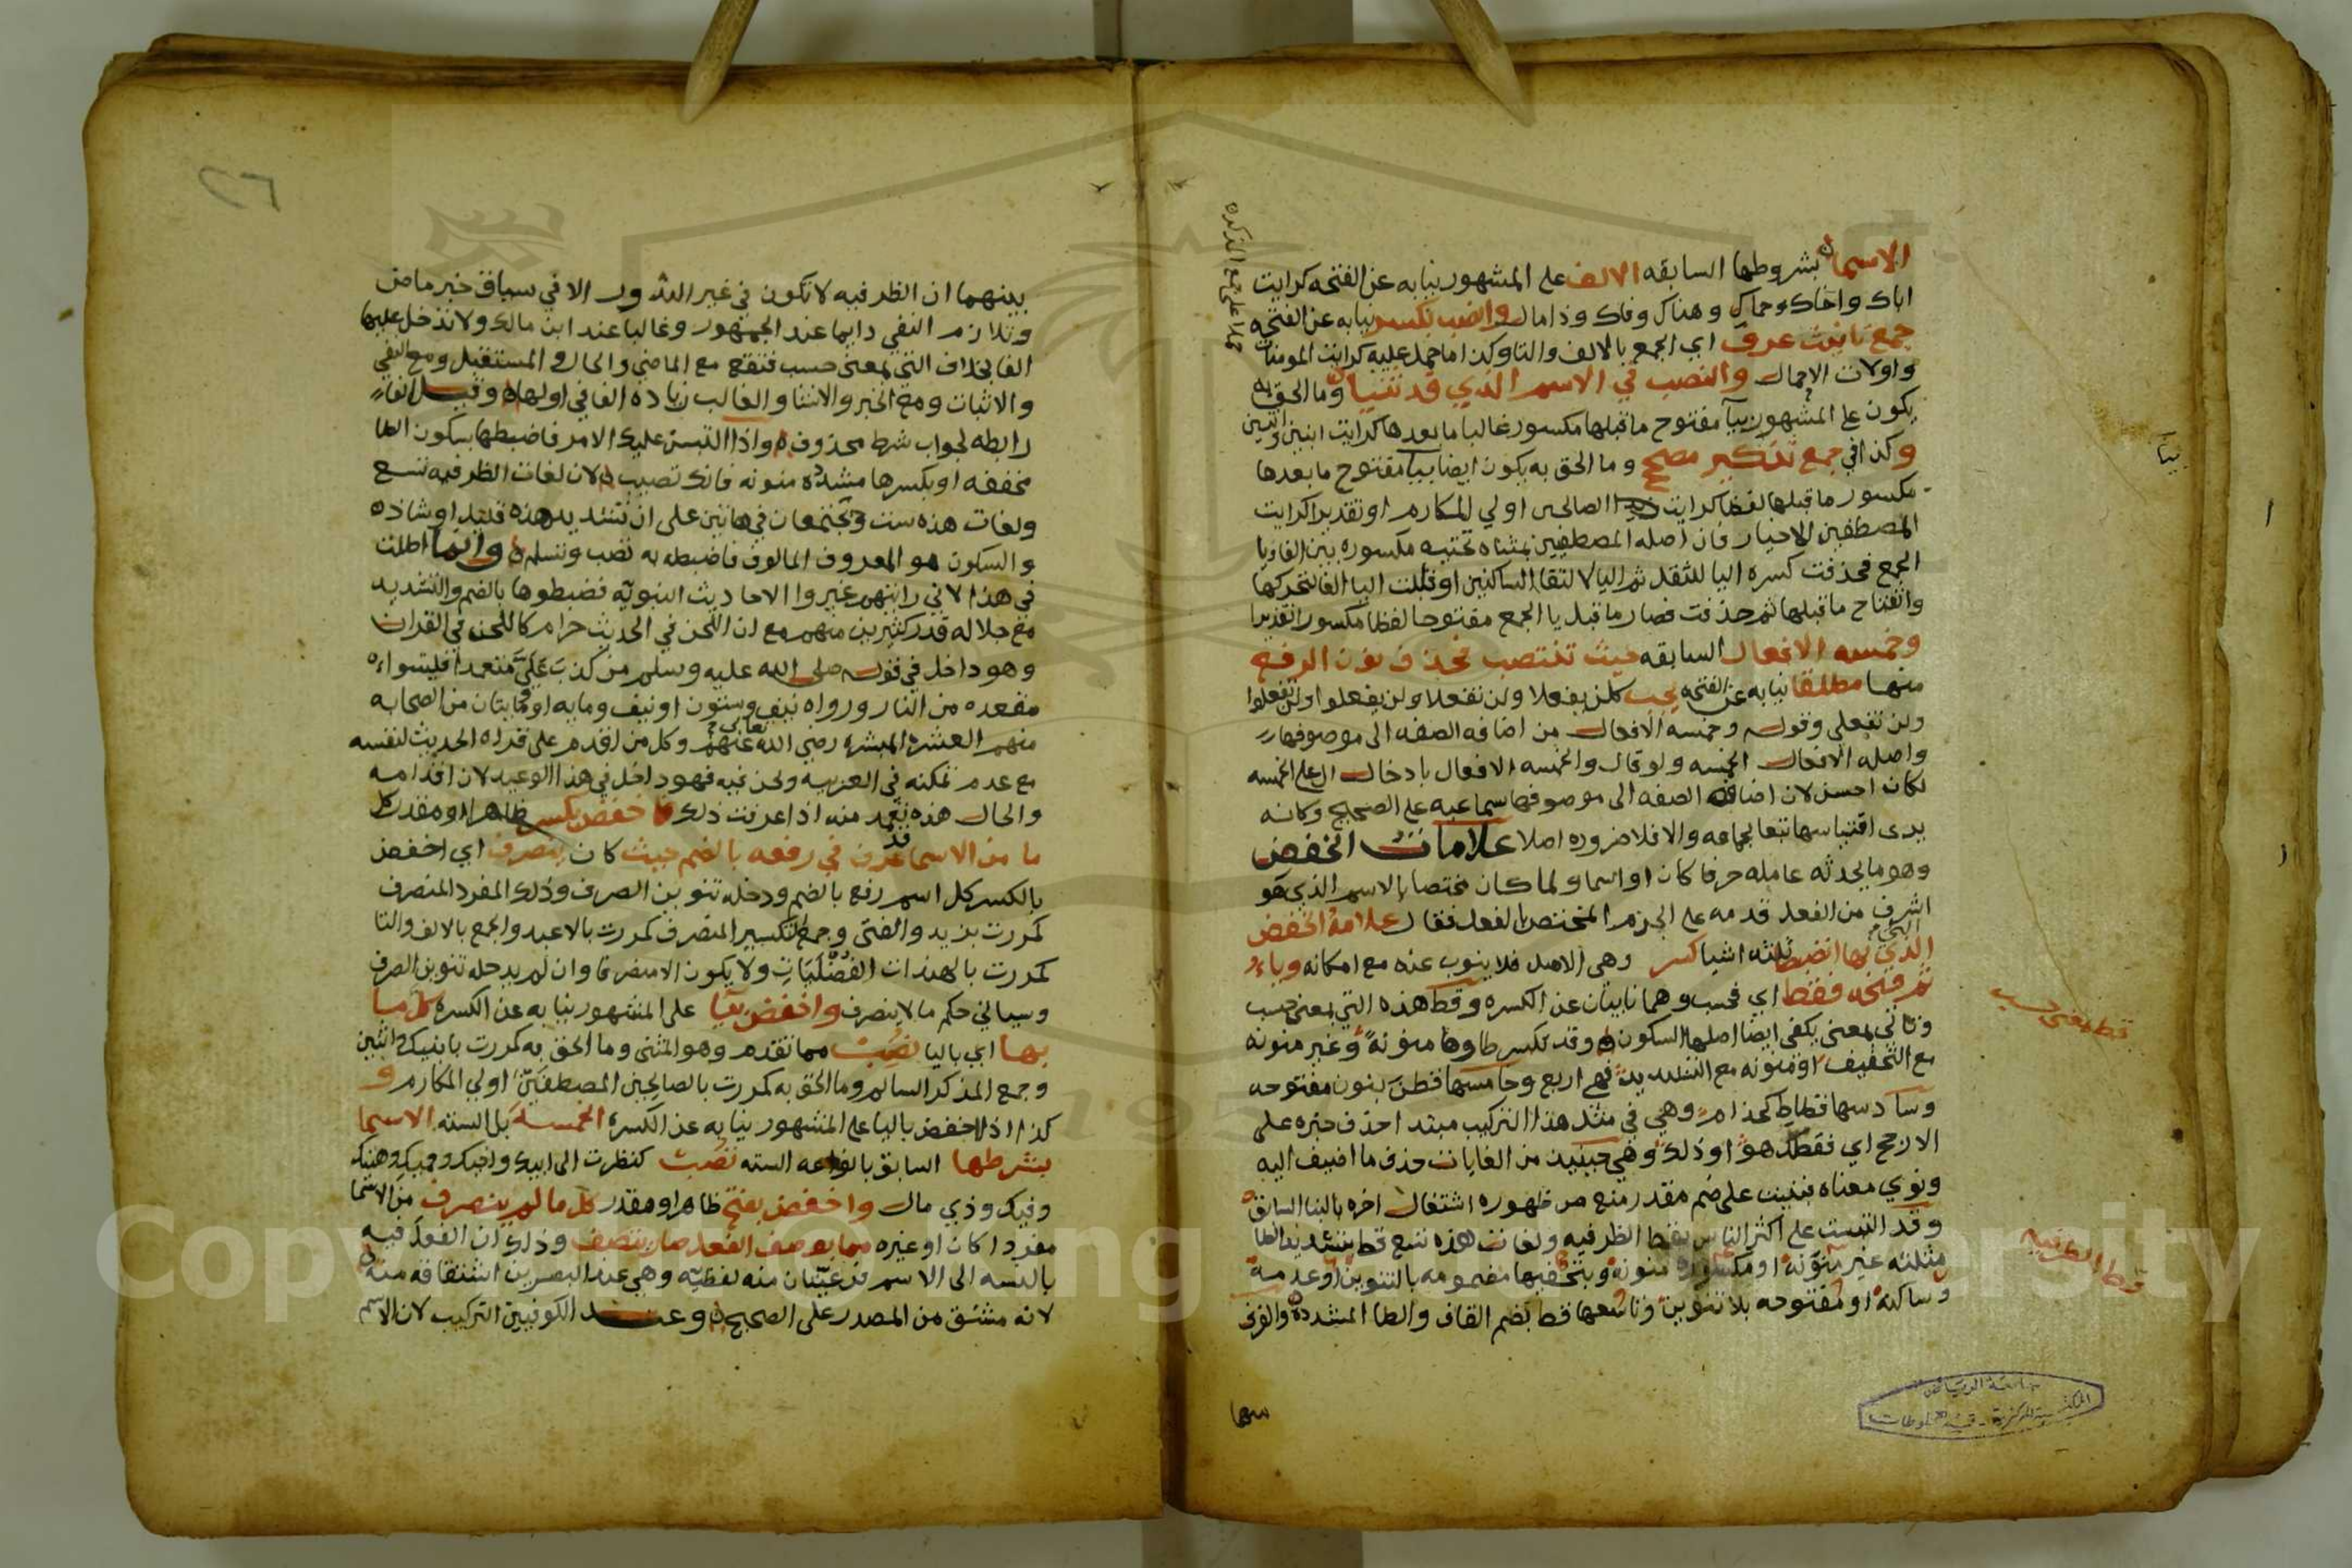 الاسما بشروطها السابقه الالف على المشهور نيابه عن الفتحه كرايت
اباك واخاك وحماك وهناك وفاك وذا مال وانصب بكسر نيابه عن الفتحه
جمع تانيث عرف اي الجمع بالالف والتا وكذا ما حمل عليه كرايت المومنات
واولات الاحمال والنصب في الاسم الذي قد ثنيا وما الحق به
يكون على المشهور بيا مفتوح ما قبلها مكسور غالبا ما بعدها كرايت ابنين واثنين
وكذا في جمع تذكير مصحح وما الحق به يكون ايضا بيا مفتوح ما بعدها
مكسور ما قبلها لفظا كرايت الصالحين اولي المكارم او تقديرا كرايت
المصطفين الاخيار فان اصله المصطفيين بمثناه تحتيه مكسوره بين الفا ويا
الجمع فحذفت كسره اليا للثقل ثم اليا لالتقا الساكنين او قلبت اليا الفا لتحركها
وانفتاح ما قبلها ثم حذفت فصار ما قبل يا الجمع مفتوحا لفظا مكسورا تقديرا
وخمسه الافعال السابقه حيث تنتصب فحذف نون الرفع
منها مطلقا نيابه عن الفتحه يجب كلن يفعلا ولن تفعلا ولن يفعلوا ولن تفعلوا
ولن تفعلي وقوله وخمسه الافعال من اضافه الصفه الى موصوفها
واصله الافعال الخمسه ولو قال والخمسه الافعال بادخال ال على الخمسه
لكان احسن لان اضافه الصفه الى موصوفها سماعيه على الصحيح وكانه
يرى اقتياسها تبعا لجماعه والا فلا ضروره اصلا علامات الخفض
وهو ما يحدثه عامله حرفا كان او اسما ولما كان مختصا بالاسم الذي هو
اشرف من الفعل قدمه على الجزم المختص بالفعل فقال علامة الخفض
التي بها انضبط ثلثه اشيا كسر وهي الاصل فلا ينوب عنه مع امكانه وياء
ثم فتحه فقط اي فحسب وهما نايبان عن الكسره وقط هذه التي بمعنى حسب
وتاتي بمعنى يكفي ايضا اصلها السكون وقد تكسر طاوها منونة وغير منونه
مع التخفيف او منونه مع التشديد فهي اربع وخامسها قطن بنون مفتوحه
وسادسها قطاط كحذام وهي في مثل هذا التركيب مبتدا حذف خبره على
الارجح اي فقطك هو او ذلك وهي حينئذ من الغايات حذف ما اضيف اليه
ونوي معناه فبنيت على ضم مقدر منع من ظهوره اشتغال اخره بالبنا السابق
وقد التبست على اكثر الناس بقط الظرفيه ولغات هذه تسع قط بتشديد الطا
مثلثه غير منونة او مكسورة منونة وبتخفيفها مضمومه بالتنوين او عدمه
وساكنه او مفتوحه بلا تنوين وتاسعها قط بضم القاف والطا المشدده والفرق
حملا على جمع المذكر
قط بمعنى حسب
قط الظرفيه
جامعة الرياض
المكتبة المركزية - قسم المخطوطات
بينهما
٢٦
بينهما ان الظرفيه لا تكون في غير الشذور الا في سياق خبر ماض
وتلازم النفي دايما عند الجمهور وغالبا عند ابن مالك ولا تدخل عليها
الفا بخلاف التي بمعنى حسب فتقع مع الماضي والحال والمستقبل ومع النفي
والاثبات ومع الخبر والانشا والغالب زياده الفا في اولها وقيل الفاء
رابطه لجواب شرط محذوف واذا التبس عليك الامر فاضبطها بسكون الطا
مخففه او بكسرها مشدده منونه فانك تصيب لان لغات الظرفيه تسع
ولغات هذه ست ويجتمعان في هاتين على ان تشديد هذه قليل او شاذ
والسكون هو المعروف المالوف فاضبطه به تصب وتسلم وانما اطلت
في هذا لاني رايتهم غيروا الاحاديث النبويه فضبطوها بالضم والتشديد
مع جلاله قدر كثيرين منهم مع ان اللحن في الحديث حرام كاللحن في القران
وهو داخل في قوله صلى الله عليه وسلم من كذب علي متعمدا فليتبواء
مقعده من النار ورواه نيف وستون او نيف ومايه او مايتان من الصحابه
منهم العشرة المبشره رضي الله تعالى عنهم وكل من اقدم على قراه الحديث لنفسه
مع عدم تمكنه في العربيه ولحن فيه فهو داخل في هذا الوعيد لان اقدامه
والحال هذه تعمد منه اذا عرفت ذلك فاخفض بكسر ظاهر او مقدر كل
ما من الاسما قد عرف في رفعه بالضم حيث كان ينصرف اي اخفض
بالكسر كل اسم رفع بالضم ودخله تنوين الصرف وذلك المفرد المنصرف
كمررت بزيد والفتى وجمع التكسير المنصرف كمررت بالاعبد والجمع بالالف والتا
كمررت بالهندات الفضليات ولا يكون الا منصرفا وان لم يدخله تنوين الصرف
وسياتي حكم ما لا ينصرف واخفض بيا على المشهور نيابه عن الكسره كل ما
بها اي باليا نصب مما تقدم وهو المثنى وما الحق به كمررت بابنيك واثنين
وجمع المذكر السالم وما الحق به كمررت بالصالحين المصطفين اولي المكارم و
كذا اذا اخفض باليا على المشهور نيابه عن الكسره الخمسه بل السته الاسما
بشرطها السابق بانواعه السته تصب كنظرت الى ابيك واخيك وحميك وهنيك
وفيك وذي مال واخفض بفتح ظاهر او مقدر كل ما لم ينصرف من الاسما
مفردا كان او غيره مما بوصف الفعل صار يتصف وذلك ان الفعل فيه
بالنسبه الى الاسم فرعيتان منه لفظيه وهي عند البصريين اشتقاقه منه
لانه مشتق من المصدر على الصحيح وعند الكوفيين التركيب لان الاسم